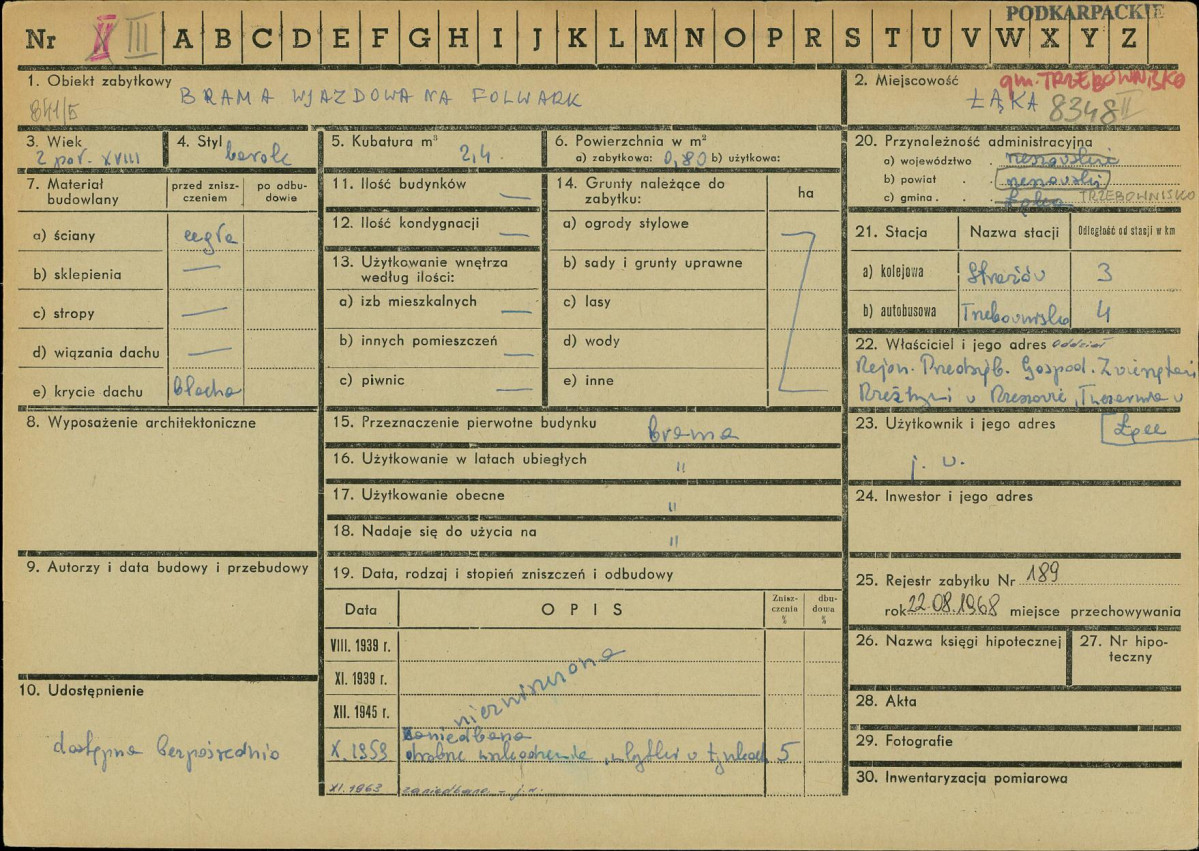 PODKARPACKIE
Nr X III A B C D E F G H I J K L M N O P R S T U V W X Y Z
1. Obiekt zabytkowy
BRAMA WJAZDOWA NA FOLWARK
841/5
2. Miejscowość gm. TRZEBOWNISKO
ŁĄKA 8348 II
3. Wiek
2 poł. XVIII
4. Styl barok
5. Kubatura m³
2,4.
6. Powierzchnia w m²
a) zabytkowa: 0,80 b) użytkowa:
7. Materiał budowlany
przed zniszczeniem
po odbudowie
a) ściany cegła
b) sklepienia —
c) stropy —
d) wiązania dachu —
e) krycie dachu blacha
8. Wyposażenie architektoniczne
9. Autorzy i data budowy i przebudowy
10. Udostępnienie
dostępna bezpośrednio
11. Ilość budynków —
12. Ilość kondygnacji —
13. Użytkowanie wnętrza
według ilości:
a) izb mieszkalnych —
b) innych pomieszczeń —
c) piwnic —
14. Grunty należące do
zabytku:
ha
a) ogrody stylowe
b) sady i grunty uprawne
c) lasy
d) wody
e) inne
15. Przeznaczenie pierwotne budynku brama
16. Użytkowanie w latach ubiegłych "
17. Użytkowanie obecne "
18. Nadaje się do użycia na "
19. Data, rodzaj i stopień zniszczeń i odbudowy
Data
OPIS
Zniszczenia %
dbudowa %
VIII. 1939 r.
XI. 1939 r.
XII. 1945 r.
niezniszczona
zaniedbana
X. 1959 drobne uszkodzenia, ubytki w tynkach 5
XI. 1963 zaniedbane - j.w.
20. Przynależność administracyjna
a) województwo rzeszowskie
b) powiat rzeszowski
c) gmina Łąka TRZEBOWNISKO
21. Stacja
Nazwa stacji
Odległość od stacji w km
a) kolejowa Strażów 3
b) autobusowa Trzebownisko 4
22. Właściciel i jego adres Oddział
Rejon. Przedsięb. Gospod. Zwierzętami
Rzeźnymi w Rzeszowie, Tuczarnia w
Łące
23. Użytkownik i jego adres
j. w.
24. Inwestor i jego adres
25. Rejestr zabytku Nr 189
rok 22.08.1968 miejsce przechowywania
26. Nazwa księgi hipotecznej
27. Nr hipoteczny
28. Akta
29. Fotografie
30. Inwentaryzacja pomiarowa